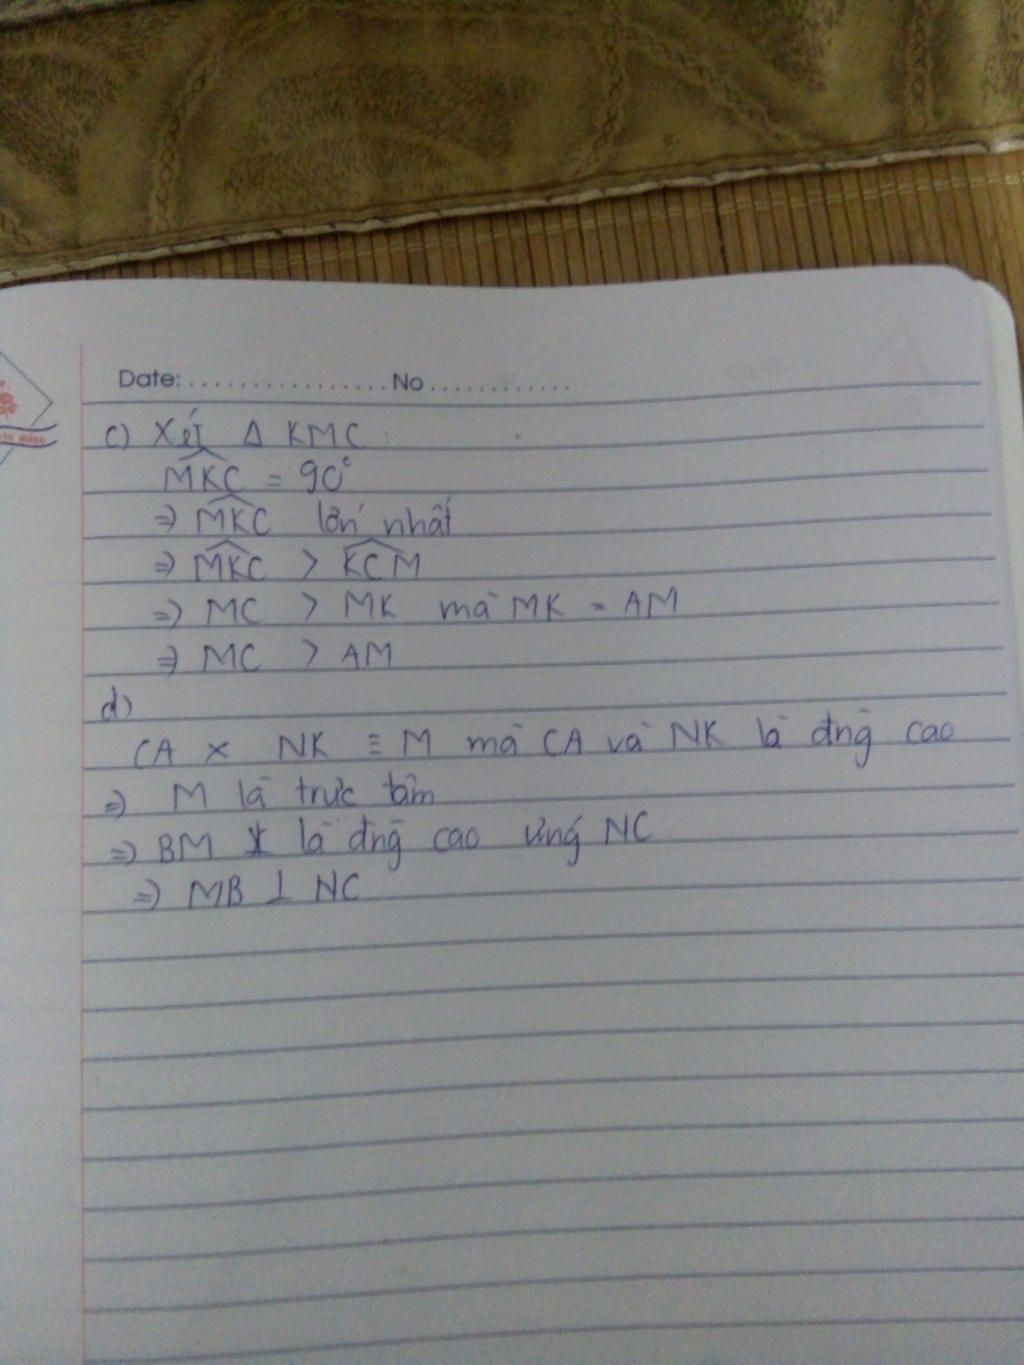 Date:................No............
c) Xét Δ KMC
\widehat{MKC} = 90°
⇒ \widehat{MKC} lớn nhất
⇒ \widehat{MKC} > \widehat{KCM}
⇒ MC > MK mà MK = AM
⇒ MC > AM
d)
CA × NK ≡ M mà CA và NK là đng̀ cao
⇒ M là trực tâm
⇒ BM là đng̀ cao ứng NC
⇒ MB ⊥ NC